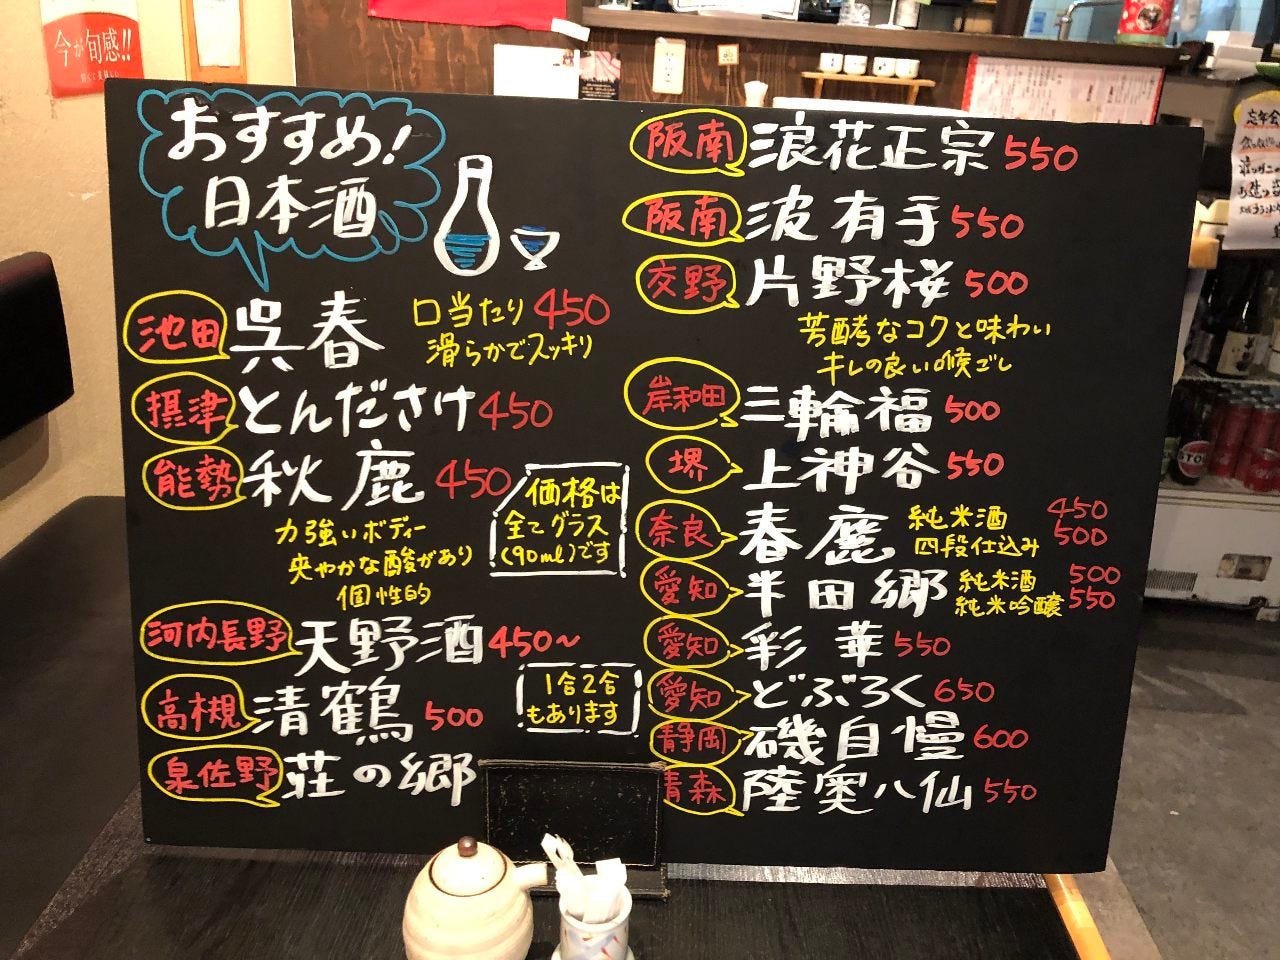 今が旬感!!
おすすめ!
日本酒
池田 呉春 450
口当たり
滑らかでスッキリ
摂津 とんださけ 450
能勢 秋鹿 450
力強いボディー
爽やかな酸があり
個性的
価格は
全てグラス
(90ml)です
河内長野 天野酒 450～
高槻 清鶴 500
1合2合
もあります
泉佐野 荘の郷
阪南 浪花正宗 550
阪南 波有手 550
交野 片野桜 500
芳酵なコクと味わい
キレの良い喉ごし
岸和田 三輪福 500
堺 上神谷 550
奈良 春鹿 純米酒 450
四段仕込み 500
愛知 半田郷 純米酒 500
純米吟醸 550
愛知 彩華 550
愛知 どぶろく 650
静岡 磯自慢 600
青森 陸奥八仙 550
忘年会